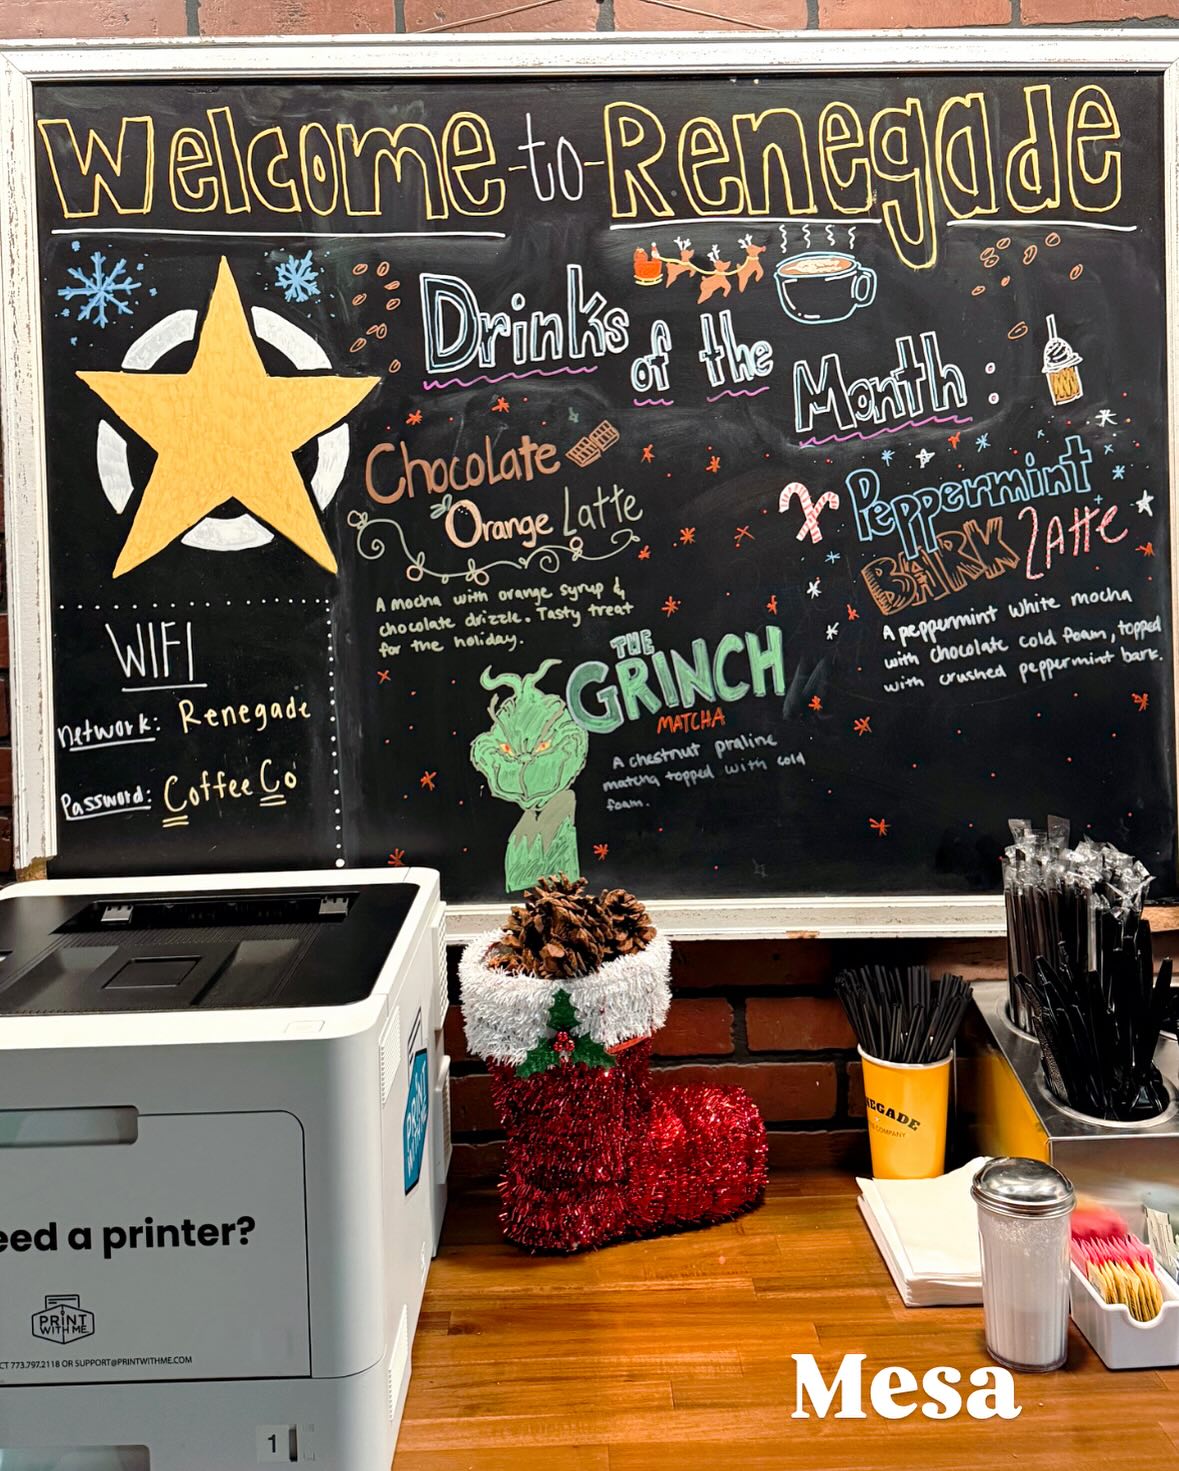 Welcome-to-Renegade
Drinks of the Month:
Chocolate
Orange Latte
A mocha with orange syrup &
chocolate drizzle. Tasty treat
for the holiday.
Peppermint
BARK Latte
A peppermint white mocha
with chocolate cold foam, topped
with crushed peppermint bark.
THE
GRINCH
MATCHA
A chestnut praline
matcha topped with cold
foam.
WIFI
network: Renegade
Password: CoffeeCo
PRINT
WITH ME
eed a printer?
PRINT
WITH ME
CT 773.797.2118 OR SUPPORT@PRINTWITHME.COM
1
NEGADE
COMPANY
Mesa